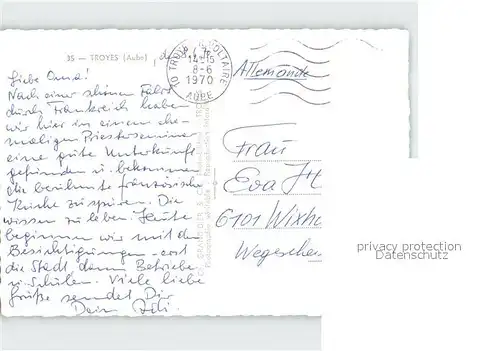 35 - TROYES (Aube)
10 TROYES R. VOLTAIRE
8-6
1970
AUBE
Liebe Oma!
Nach einer schönen Fahrt
durch Frankreich haben
wir hier in einem ehe-
maligen Priesterseminar
eine gute Unterkunft
gefunden u. bekommen
die berühmte französische
Küche zu spüren. Die
wissen zu leben. Heute
beginnen wir mit den
Besichtigungen - erst
die Stadt, dann Betriebe
u. Schulen. Viele liebe
Grüße sendet Dir
Dein
Allemande
Frau
Eva H
6101 Wixh
Wegesche
privacy protection
Datenschutz